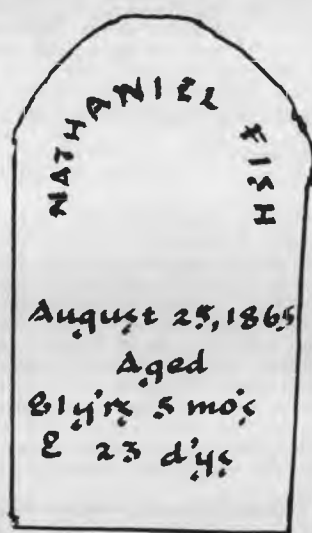 NATHANIEL FISH
August 25, 1865
Aged
81 y'rs 5 mo's
& 23 d'ys